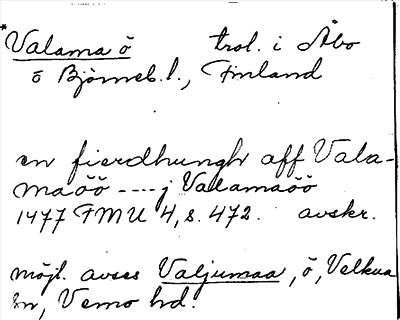 *Valama ö trol. i Åbo
o Björneb. l., Finland
en fierdhungh aff Vala-
maöö ---- j Valamaöö
1477 FMU 4, s. 472. avskr.
möjl. avses Valjumaa, ö, Velkua
sn, Vemo hd.